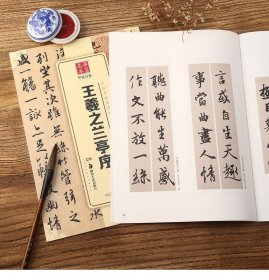 言或自生天趣
事當曲盡人情
聽曲能生萬感
作文不放一絲
王羲之兰亭序
列坐其次雖無絲竹管弦之
盛一觴一詠亦足以
幽情